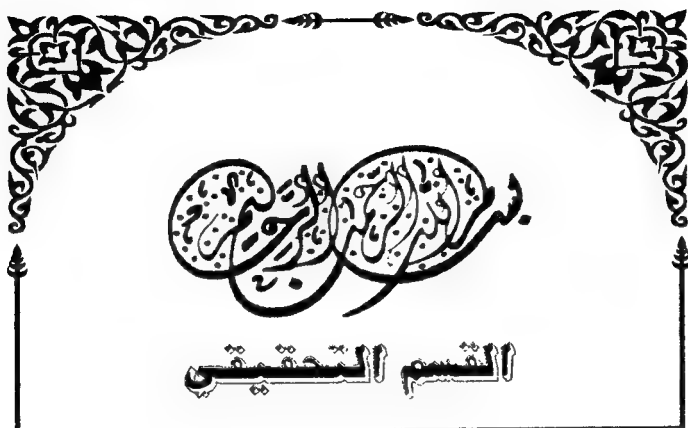 بسم الله الرحمن الرحيم
القسم التحقيقي